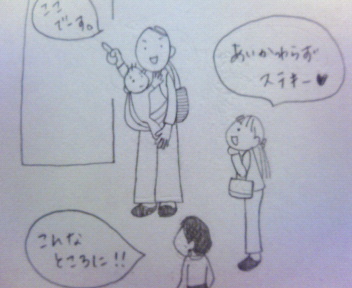 ここ
です。
あいかわらず
ステキー♥
こんな
ところに!!